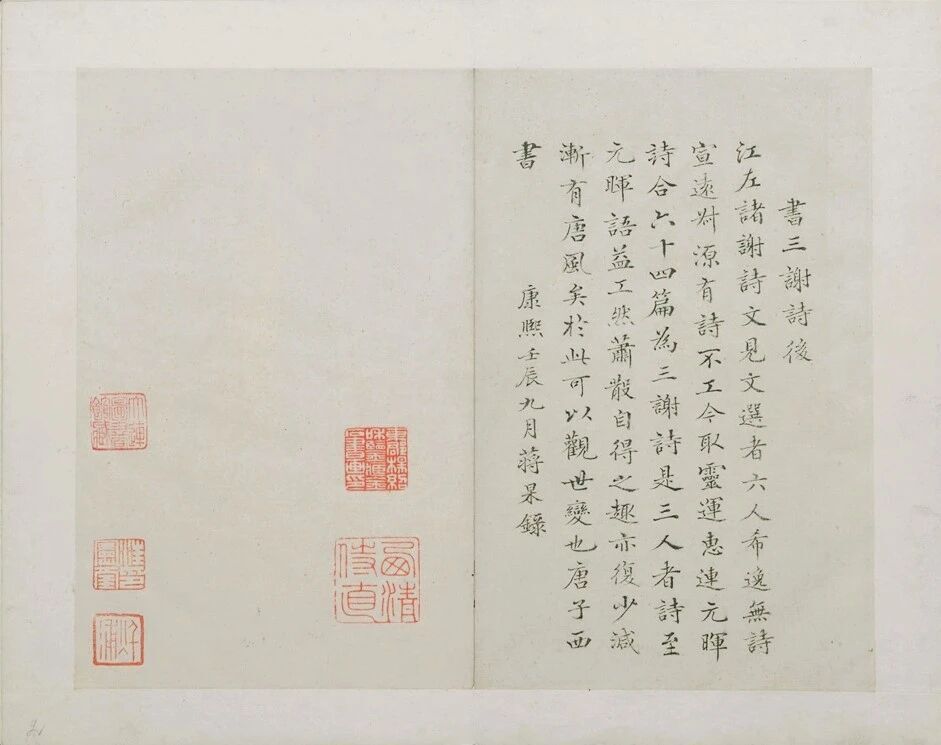 書三謝詩後
江左諸謝詩文見文選者六人希逸無詩
宣遠叔源有詩不工今取靈運惠連元暉
詩合六十四篇為三謝詩是三人者詩至
元暉語益工然蕭散自得之趣亦復少減
漸有唐風矣於此可以觀世變也唐子西
書
康熙壬辰九月蔣杲錄
西清
侍直